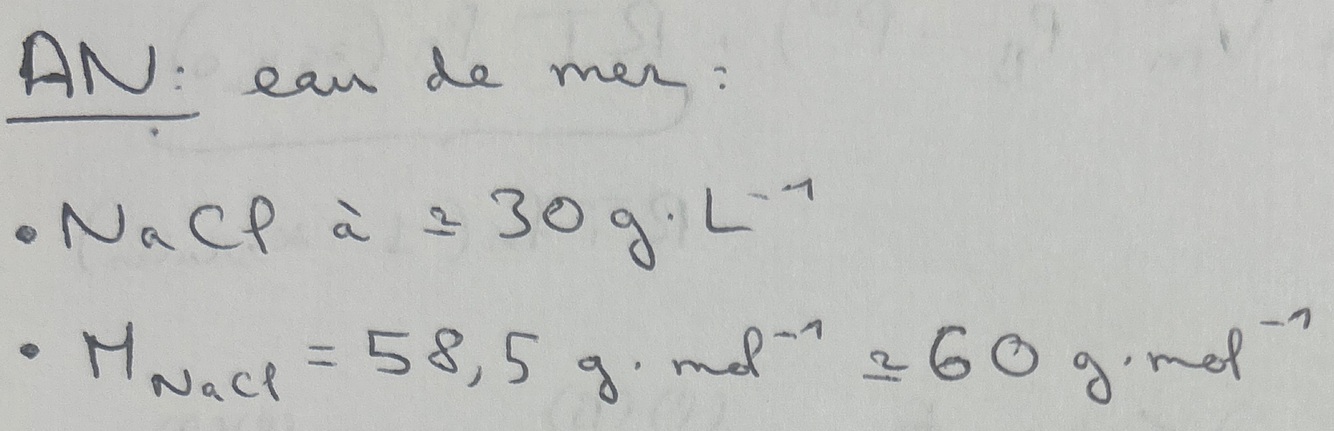 AN: eau de mer :
• NaCl à ≃ 30 g·L⁻¹
• M_NaCl = 58,5 g·mol⁻¹ ≃ 60 g·mol⁻¹